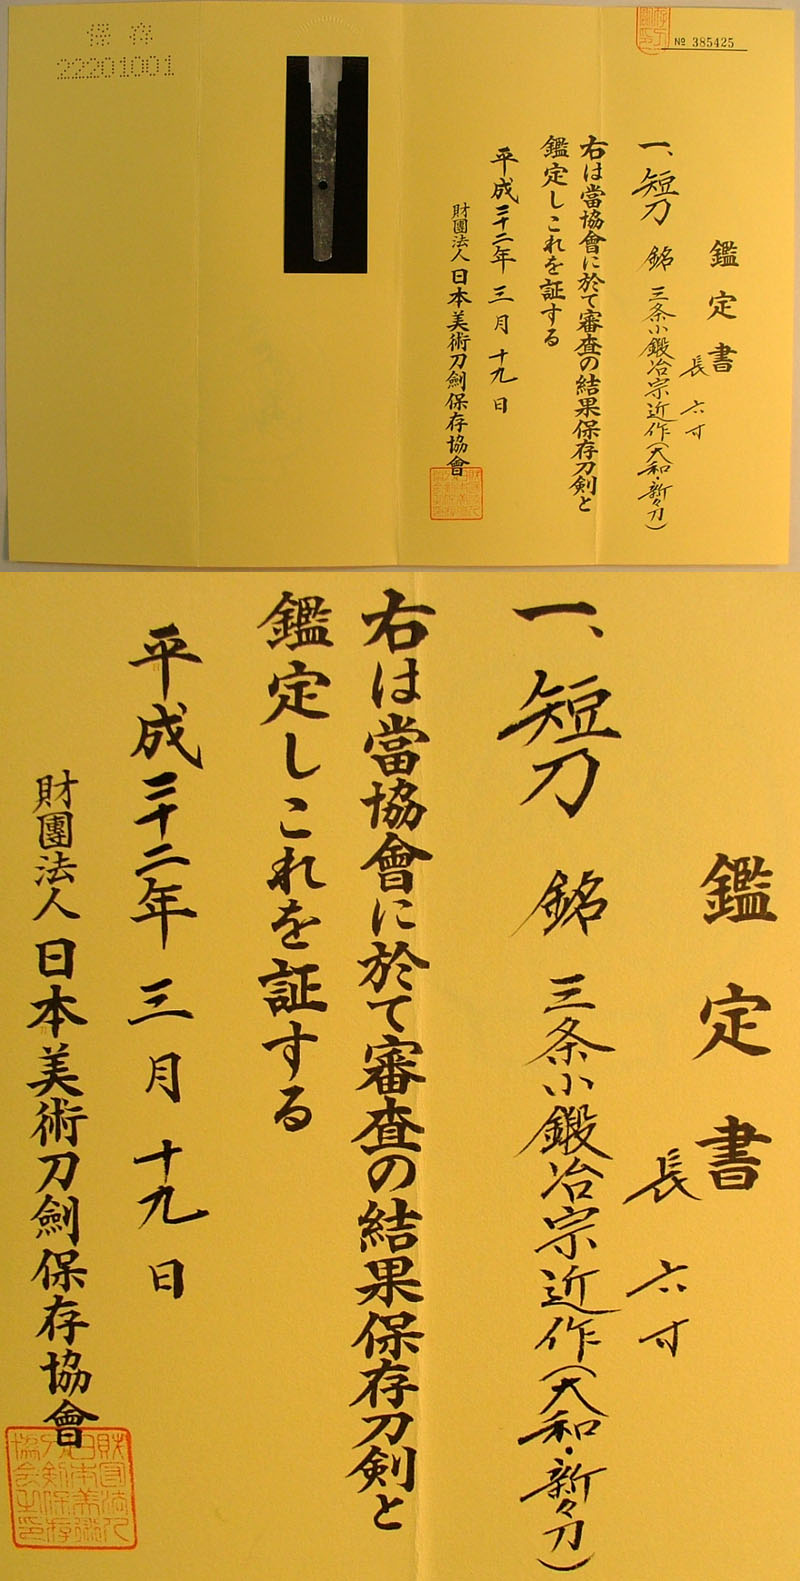 保存
22201001
№ 385425
鑑定書
長 六寸
一、短刀 銘 三条小鍛冶宗近作(大和・新々刀)
右は當協會に於て審査の結果保存刀剣と
鑑定しこれを証する
平成二十二年 三月 十九日
財團法人 日本美術刀劍保存協會
鑑定書
長 六寸
一、短刀 銘 三条小鍛冶宗近作(大和・新々刀)
右は當協會に於て審査の結果保存刀剣と
鑑定しこれを証する
平成二十二年 三月 十九日
財團法人 日本美術刀劍保存協會